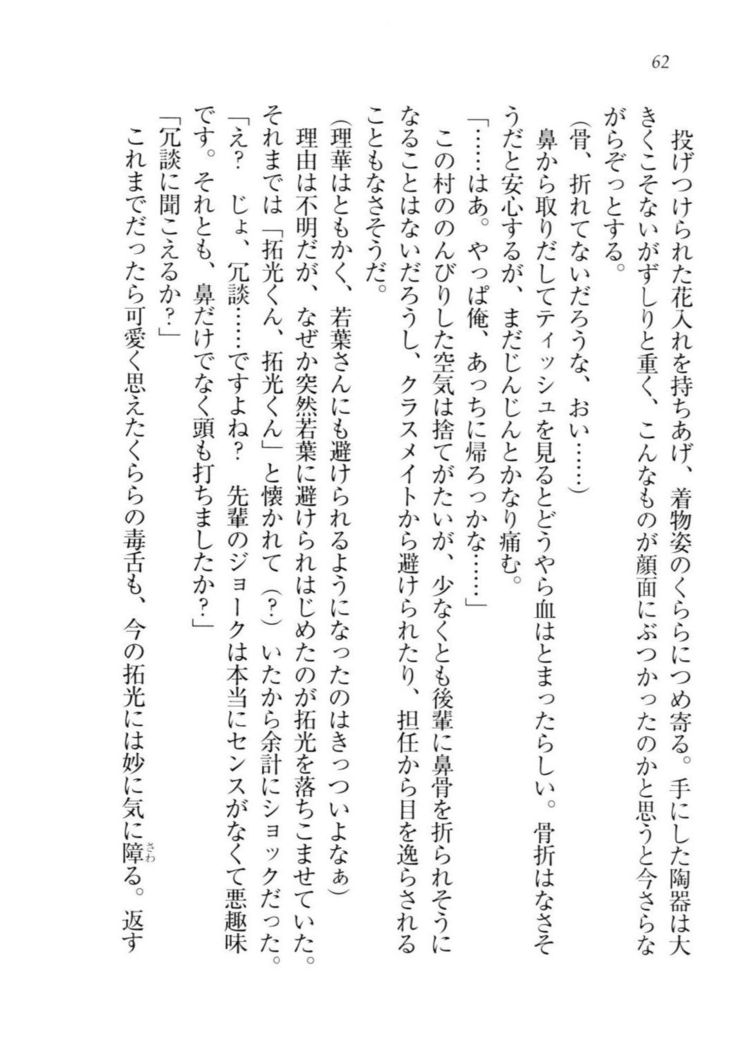 62
投げつけられた花入れを持ちあげ、着物姿のくららにつめ寄る。手にした陶器は大
きくこそないがずしりと重く、こんなものが顔面にぶつかったのかと思うと今さらな
がらぞっとする。
（骨、折れてないだろうな、おい……）
鼻から取りだしてティッシュを見るとどうやら血はとまったらしい。骨折はなさそ
うだと安心するが、まだじんじんとかなり痛む。
「……はあ。やっぱ俺、あっちに帰ろっかな……」
この村ののんびりした空気は捨てがたいが、少なくとも後輩に鼻骨を折られそうに
なることはないだろうし、クラスメイトから避けられたり、担任から目を逸らされる
こともなさそうだ。
（理華はともかく、若葉さんにも避けられるようになったのはきっついよなぁ）
理由は不明だが、なぜか突然若葉に避けられはじめたのが拓光を落ちこませていた。
それまでは「拓光くん、拓光くん」と懐かれて（？）いたから余計にショックだった。
「え？　じょ、冗談……ですよね？　先輩のジョークは本当にセンスがなくて悪趣味
です。それとも、鼻だけでなく頭も打ちましたか？」
「冗談に聞こえるか？」
これまでだったら可愛く思えたくららの毒舌も、今の拓光には妙に気に障さわる。返す